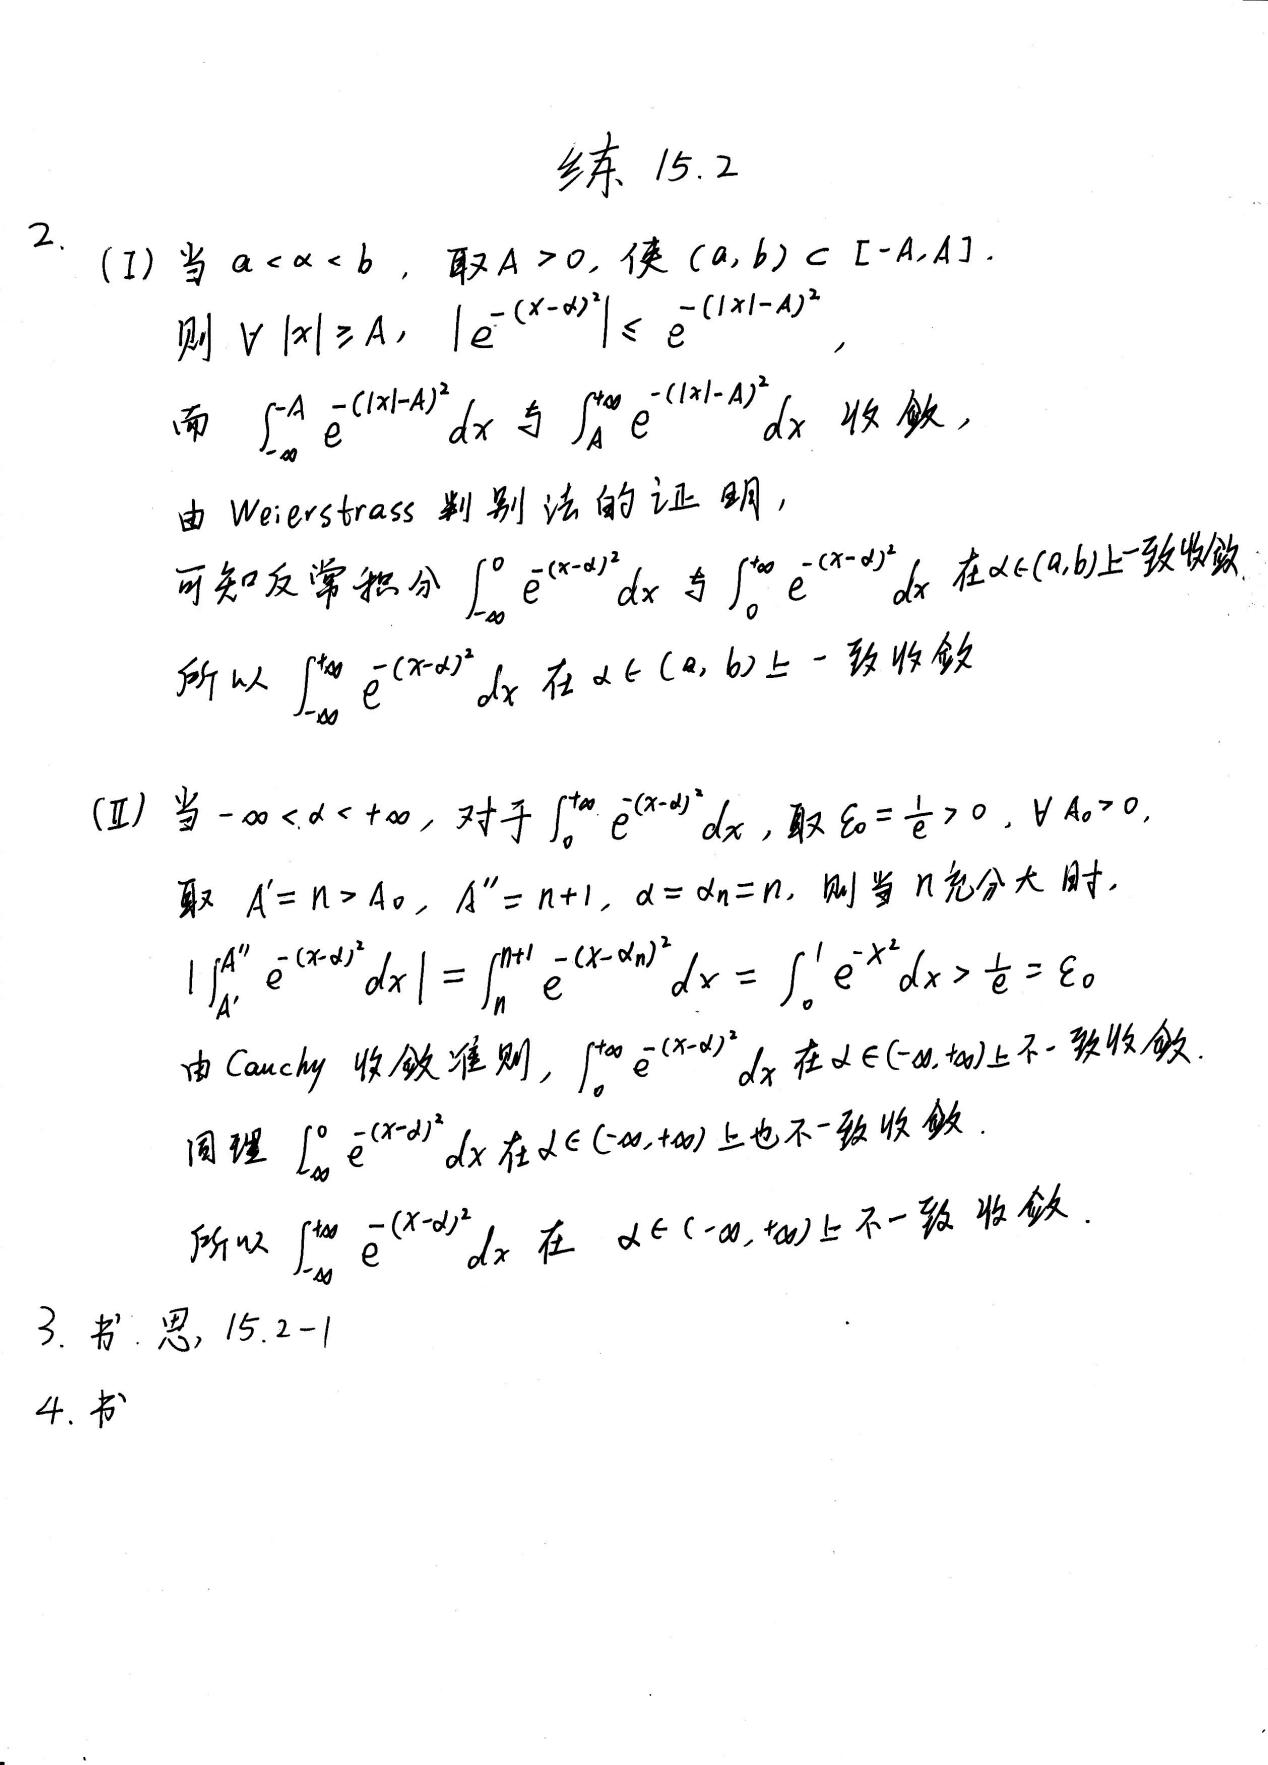 练 15.2
2.
(I) 当 a<α<b, 取A>0, 使 (a,b)⊂[-A,A].
则 ∀|x|≥A, |e^{-(x-α)²}|≤e^{-(|x|-A)²},
而 ∫_{-∞}^{-A} e^{-(|x|-A)²}dx 与 ∫_A^{+∞} e^{-(|x|-A)²}dx 收敛,
由 Weierstrass 判别法的证明,
可知反常积分 ∫_{-∞}^0 e^{-(x-α)²}dx 与 ∫_0^{+∞} e^{-(x-α)²}dx 在α∈(a,b)上一致收敛.
所以 ∫_{-∞}^{+∞} e^{-(x-α)²}dx 在 α∈(a,b)上一致收敛
(II) 当 -∞<α<+∞, 对于 ∫_0^{+∞} e^{-(x-α)²}dx, 取 ε₀=1/e>0, ∀A₀>0,
取 A'=n>A₀, A''=n+1, α=αₙ=n, 则当 n充分大时,
|∫_{A'}^{A''} e^{-(x-α)²}dx|=∫_n^{n+1} e^{-(x-αₙ)²}dx=∫_0^1 e^{-x²}dx>1/e=ε₀
由 Cauchy 收敛准则, ∫_0^{+∞} e^{-(x-α)²}dx 在α∈(-∞,+∞)上不一致收敛.
同理 ∫_{-∞}^0 e^{-(x-α)²}dx 在α∈(-∞,+∞)上也不一致收敛.
所以 ∫_{-∞}^{+∞} e^{-(x-α)²}dx 在 α∈(-∞,+∞)上不一致收敛.
3. 书. 思, 15.2-1
4. 书